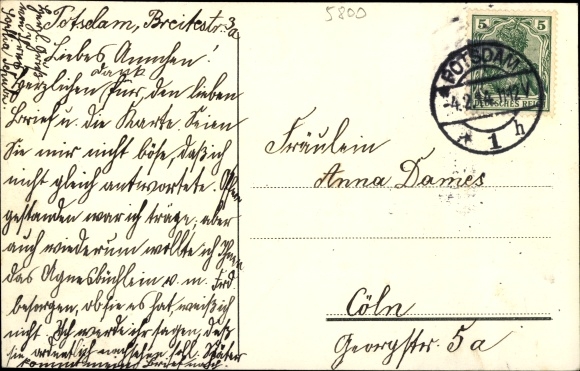 Potsdam, Breitestr. 3/a
Liebes Annchen!
Herzlichen Dank für den lieben
Brief u. die Karte. Seien
Sie mir nicht böse, daß ich
nicht gleich antwortete. Offen
gestanden war ich träge; aber
auch wiederum wollte ich Ihnen
das Agnesbüchlein v. m. Frd
besorgen, ob sie es hat, weiß ich
nicht. Ich werde ihr sagen, daß
sie ordentlich nachsehen soll. Später
kommt mein Brief nach.
5800
5
DEUTSCHES REICH
POTSDAM
1 h
Fräulein
Anna Dames
Cöln
Georgstr. 5a